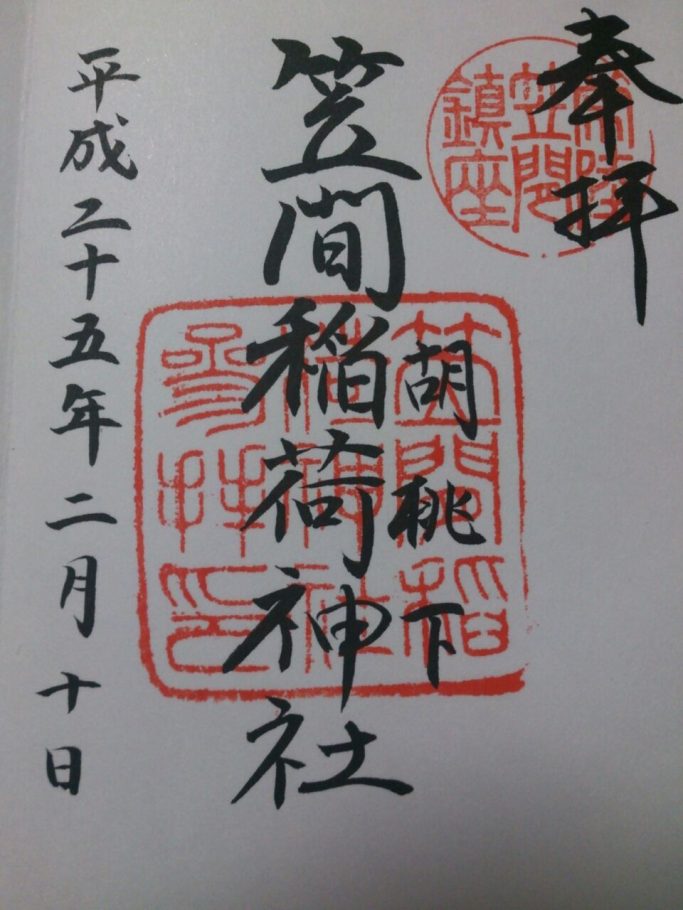 奉拝
常陸
笠間
鎮座
胡桃下
笠間稲荷神社
笠間稲
荷神社
参拝印
平成二十五年二月十日